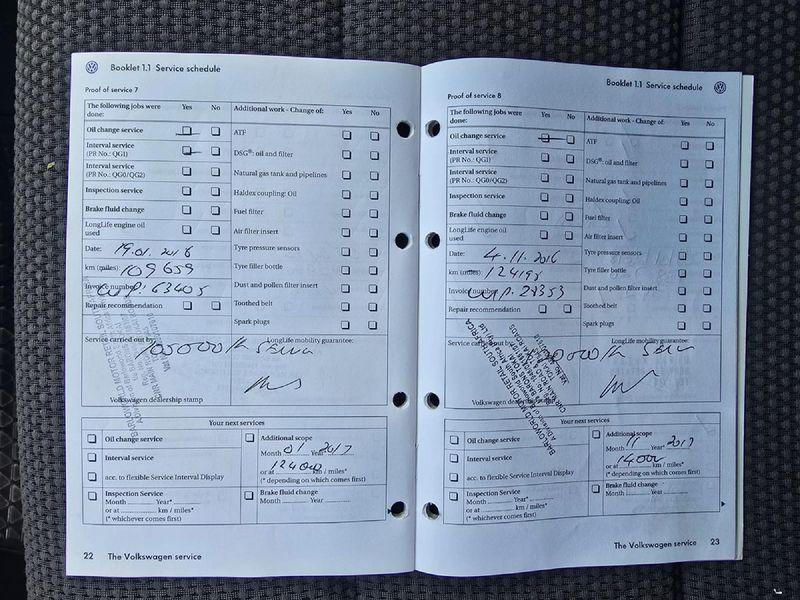 Booklet 1.1 Service schedule
Proof of service 7
The following jobs were done: Yes No
Additional work - Change of: Yes No
Oil change service
ATF
Interval service
(PR No.: QG1)
DSG®: oil and filter
Interval service
(PR No.: QG0/QG2)
Natural gas tank and pipelines
Inspection service
Haldex coupling: Oil
Brake fluid change
Fuel filter
LongLife engine oil
used
Air filter insert
Date: 19.01.2016
Tyre pressure sensors
km (miles): 109659
Tyre filler bottle
Invoice number: 63405
Dust and pollen filter insert
Repair recommendation
Toothed belt
Spark plugs
Service carried out by:
LongLife mobility guarantee:
Volkswagen dealership stamp
Your next services
Oil change service
Interval service
acc. to flexible Service Interval Display
Inspection Service
Month Year*
or at km / miles*
(* whichever comes first)
Additional scope
Month 01 Year 2017
or at km / miles*
(* depending on which comes first)
Brake fluid change
Month Year
22 The Volkswagen service
Booklet 1.1 Service schedule
Proof of service 8
The following jobs were done: Yes No
Additional work - Change of: Yes No
Oil change service
ATF
Interval service
(PR No.: QG1)
DSG®: oil and filter
Interval service
(PR No.: QG0/QG2)
Natural gas tank and pipelines
Inspection service
Haldex coupling: Oil
Brake fluid change
Fuel filter
LongLife engine oil
used
Air filter insert
Date: 4.11.2016
Tyre pressure sensors
km (miles):
Tyre filler bottle
Invoice number
Dust and pollen filter insert
Repair recommendation
Toothed belt
Spark plugs
LongLife mobility guarantee:
BARLOWORLD MOTOR RETAIL SOUTH AFRICA
Volkswagen dealership
Your next services
Oil change service
Interval service
acc. to flexible Service Interval Display
Inspection Service
Month Year*
or at km / miles*
(* whichever comes first)
Additional scope
Month 11 Year 2017
or at km / miles*
(* depending on which comes first)
Brake fluid change
Month Year
The Volkswagen service 23